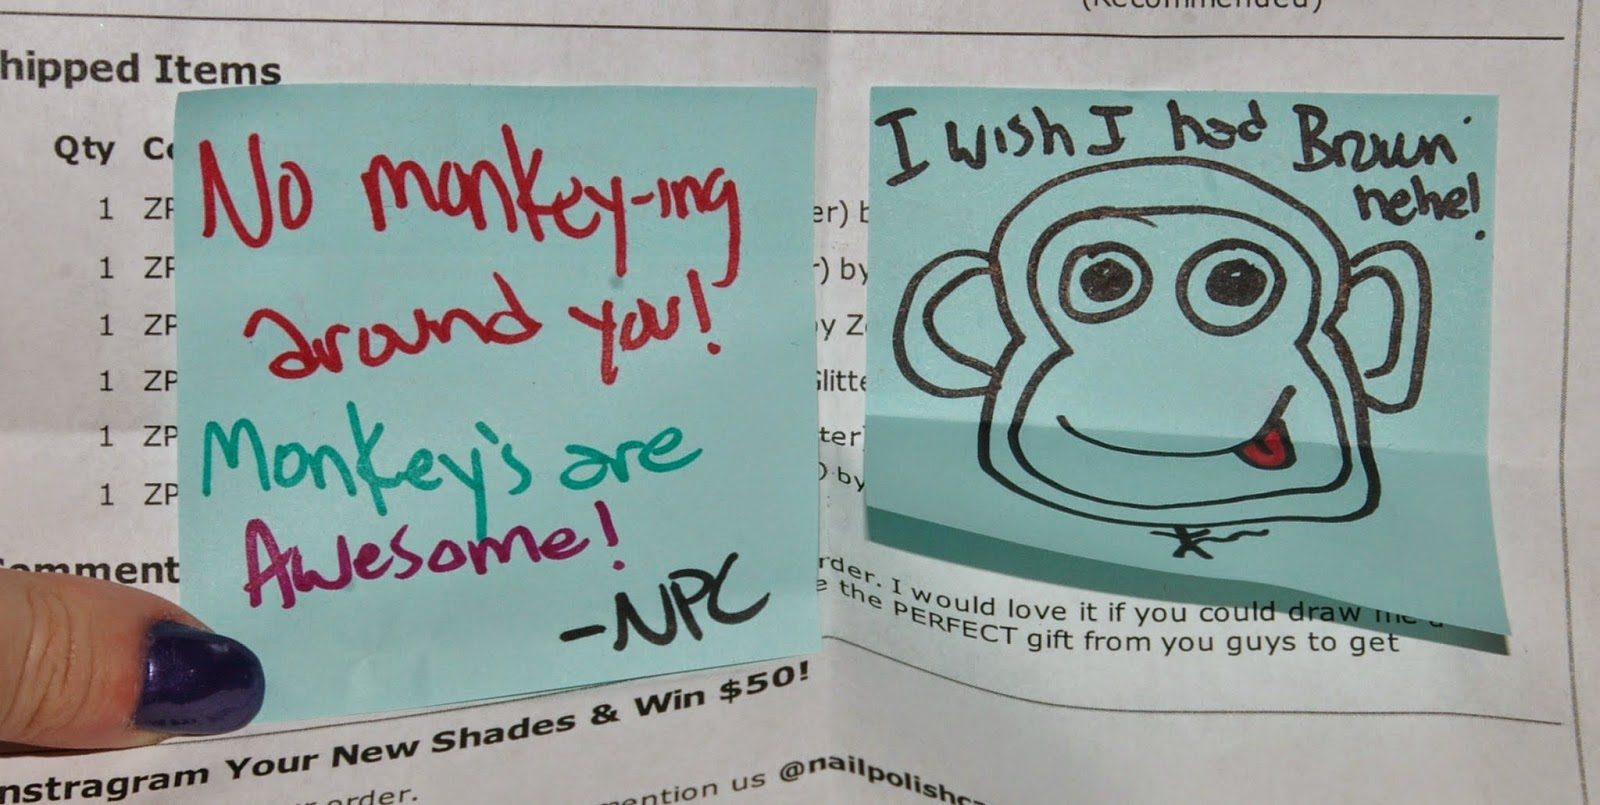 (Recommended)
hipped Items
Qty
1 ZP
1 ZP
1 ZP
1 ZP
1 ZP
1 ZP
No monkey-ing
around you!
Monkey's are
Awesome!
-NPC
er) b
r) by
by Z
Glitte
ter)
) by
I wish I had Brown
hehe!
omment
rder. I would love it if you could draw me a
e the PERFECT gift from you guys to get
nstragram Your New Shades & Win $50!
order.
mention us @nailpolishc